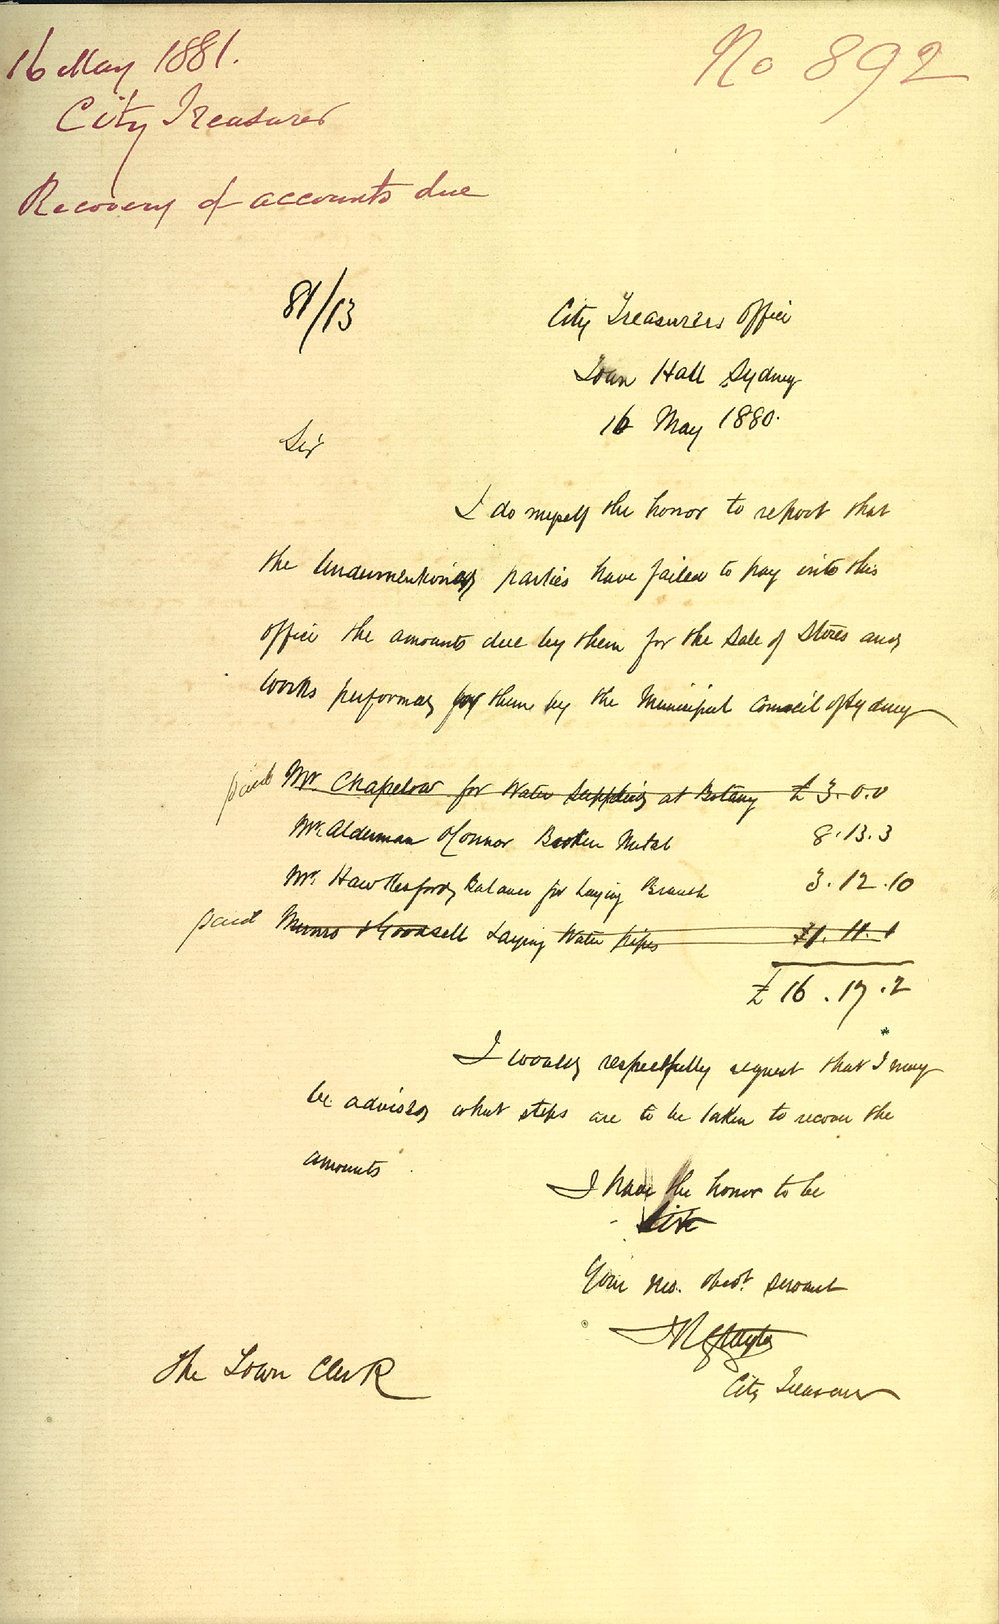 16 May 1881.
City Treasurer
Recovery of accounts due
No 892
81/13
City Treasurers Office
Town Hall Sydney
16 May 1880.
Sir
I do myself the honor to report that
the Undermentioned parties have failed to pay into this
office the amounts due by them for the Sale of Stores and
works performed for them by the Municipal Council of Sydney
paid Mr. Chapelow for Water Supplied at Botany £ 3.0.0
Mr. Alderman O'Connor Broken Metal 8.13.3
Mr. Hawkesford, Balance for Laying Branch 3.12.10
paid Munro & Goodsell Laying Water Pipes £1.11.1
£ 16.17.2
I would respectfully request that I may
be advised what steps are to be taken to recover the
amounts.
I have the honor to be
Sir
Your Mo. Obedt. Servant
City Treasurer
The Town Clerk